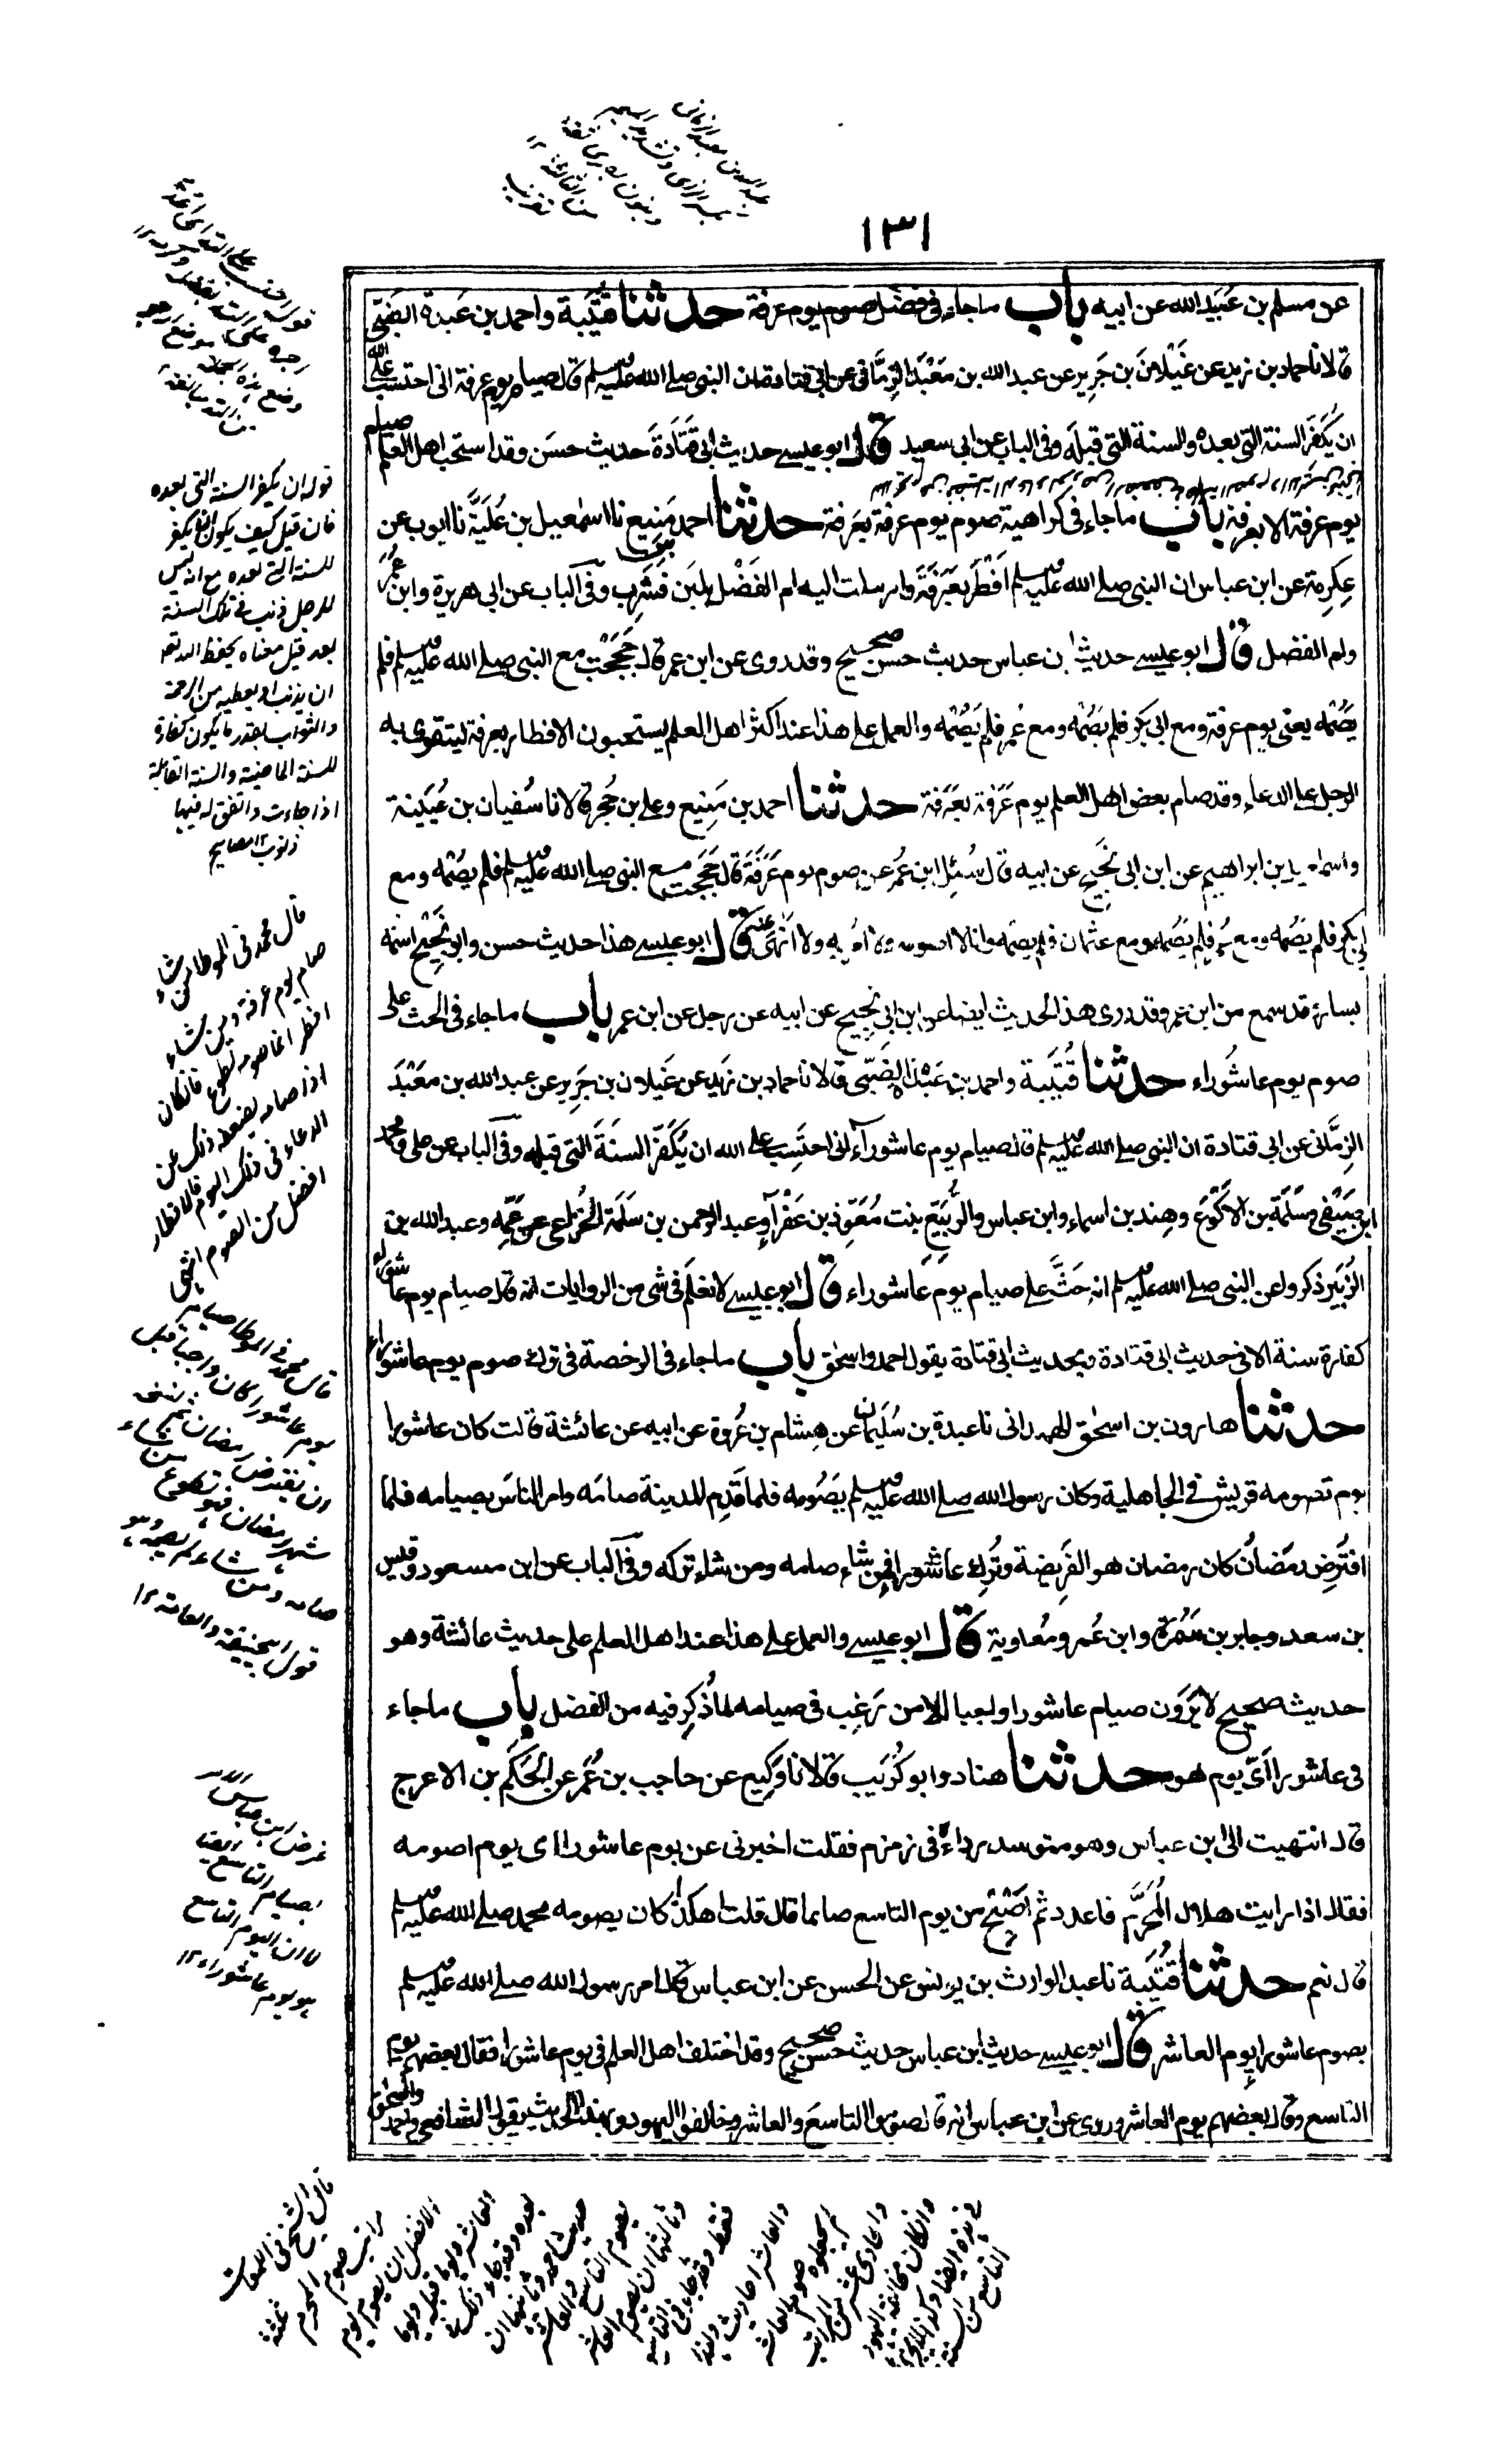 ١٣١
عن مسلم بن عبيد الله عن ابيه باب ماجاء فى فضل صوم يوم عرفة حدثنا قتيبة واحمد بن عبدة الضبى
قالا نا حماد بن زيد عن غيلان بن جرير عن عبد الله بن معبد الزمانى عن ابى قتادة ان النبى صلے الله عليه وسلم قال صيام يوم عرفة انى احتسب على الله
ان يكفر السنة التى بعده والسنة التى قبله وفى الباب عن ابى سعيد قال ابو عيسے حديث ابى قتادة حديث حسن وقد استحب اهل العلم صيام
يوم عرفة الا بعرفة باب ماجاء فى كراهية صوم يوم عرفة بعرفة حدثنا احمد بن منيع نا اسمعيل بن علية نا ايوب عن
عكرمة عن ابن عباس ان النبى صلے الله عليه وسلم افطر بعرفة وارسلت اليه ام الفضل بلبن فشرب وفى الباب عن ابى هريرة وابن عمر
وام الفضل قال ابو عيسے حديث ابن عباس حديث حسن صحيح وقد روى عن ابن عمر قال حججت مع النبى صلے الله عليه وسلم فلم
يصمه يعنى يوم عرفة ومع ابى بكر فلم يصمه ومع عمر فلم يصمه والعمل على هذا عند اكثر اهل العلم يستحبون الافطار بعرفة ليتقوى به
الرجل على الدعاء وقد صام بعض اهل العلم يوم عرفة بعرفة حدثنا احمد بن منيع وعلى بن حجر قالا نا سفيان بن عيينة
واسمعيل بن ابراهيم عن ابن ابى نجيح عن ابيه قال سئل ابن عمر عن صوم يوم عرفة قال حججت مع النبى صلے الله عليه وسلم فلم يصمه ومع
ابى بكر فلم يصمه ومع عمر فلم يصمه ومع عثمان فلم يصمه وانا لا اصومه ولا امر به ولا انهى عنه قال ابو عيسے هذا حديث حسن وابو نجيح اسمه
يسار قد سمع من ابن عمر وقد روى هذا الحديث ايضا عن ابن ابى نجيح عن ابيه عن رجل عن ابن عمر باب ماجاء فى الحث على
صوم يوم عاشوراء حدثنا قتيبة واحمد بن عبدة الضبى قالا نا حماد بن زيد عن غيلان بن جرير عن عبد الله بن معبد
الزمانى عن ابى قتادة ان النبى صلے الله عليه وسلم قال صيام يوم عاشوراء انى احتسب على الله ان يكفر السنة التى قبله وفى الباب عن على ومحمد
ابن صيفى وسلمة بن الاكوع وهند بن اسماء وابن عباس والربيع بنت معوذ بن عفراء وعبد الرحمن بن سلمة الخزاعى عن عمه وعبد الله بن
الزبير ذكروا عن النبى صلے الله عليه وسلم انه حث على صيام يوم عاشوراء قال ابو عيسے لا نعلم فى شى من الروايات انه قال صيام يوم عاشوراء
كفارة سنة الا فى حديث ابى قتادة وبحديث ابى قتادة يقول احمد واسحق باب ماجاء فى الرخصة فى ترك صوم يوم عاشوراء
حدثنا هارون بن اسحق الهمدانى نا عبدة بن سليمان عن هشام بن عروة عن ابيه عن عائشة قالت كان عاشورا
يوم تصومه قريش فى الجاهلية وكان رسول الله صلے الله عليه وسلم يصومه فلما قدم المدينة صامه وامر الناس بصيامه فلما
افترض رمضان كان رمضان هو الفريضة وترك عاشورا فمن شاء صامه ومن شاء تركه وفى الباب عن ابن مسعود وقيس
بن سعد وجابر بن سمرة وابن عمر ومعاوية قال ابو عيسے والعمل على هذا عند اهل العلم على حديث عائشة وهو
حديث صحيح لا يرون صيام عاشورا واجبا الا من رغب فى صيامه لما ذكر فيه من الفضل باب ماجاء
فى عاشورا اى يوم هو حدثنا هناد وابو كريب قالا نا وكيع عن حاجب بن عمر عن الحكم بن الاعرج
قال انتهيت الى ابن عباس وهو متوسد رداءه فى زمزم فقلت اخبرنى عن يوم عاشورا اى يوم اصومه
فقال اذا رايت هلال المحرم فاعدد ثم اصبح من يوم التاسع صايما قال قلت اهكذا كان يصومه محمد صلے الله عليه وسلم
قال نعم حدثنا قتيبة نا عبد الوارث بن يونس عن الحسن عن ابن عباس قال امر رسول الله صلے الله عليه وسلم
بصوم عاشورا يوم العاشر قال ابو عيسے حديث ابن عباس حديث حسن صحيح وقد اختلف اهل العلم فى يوم عاشورا فقال بعضهم يوم
التاسع وقال بعضهم يوم العاشر وروى عن ابن عباس انه قال صوموا التاسع والعاشر وخالفوا اليهود وبهذا الحديث يقول الشافعى واحمد واسحق
قوله ان يكفر السنة التى بعده
فان قيل كيف يكون ان يكفر
للسنة التى بعده مع انه ليس
للرجل ذنب فى تلك السنة
بعد قيل معناه يحفظ الله تعم
ان يذنب او يعطيه من الرحمة
والثواب بقدر ما يكون كفارة
للسنة الماضية والسنة القابلة
اذا جاءت واتفق له فيها
ذنوب ١٢ مصابيح
قال محمد فى الموطا من شاء
صام يوم عرفة ومن شاء
افطر انما صومه تطوع فان كان
اذا صامه يضعفه ذلك عن
الدعاء فى ذلك اليوم فالافطار
افضل من الصوم انتهى
قال محمد فى الموطا صيام
يوم عاشورا كان واجبا قبل
ان يفترض رمضان ثم نسخه
شهر رمضان فهو تطوع من شاء
صامه ومن شاء لم يصمه وهو
قول ابى حنيفة والعامة ١٢
غرض ابن عباس
بصيام التاسع ايضا
لا ان اليوم التاسع
هو يوم عاشوراء ١٢